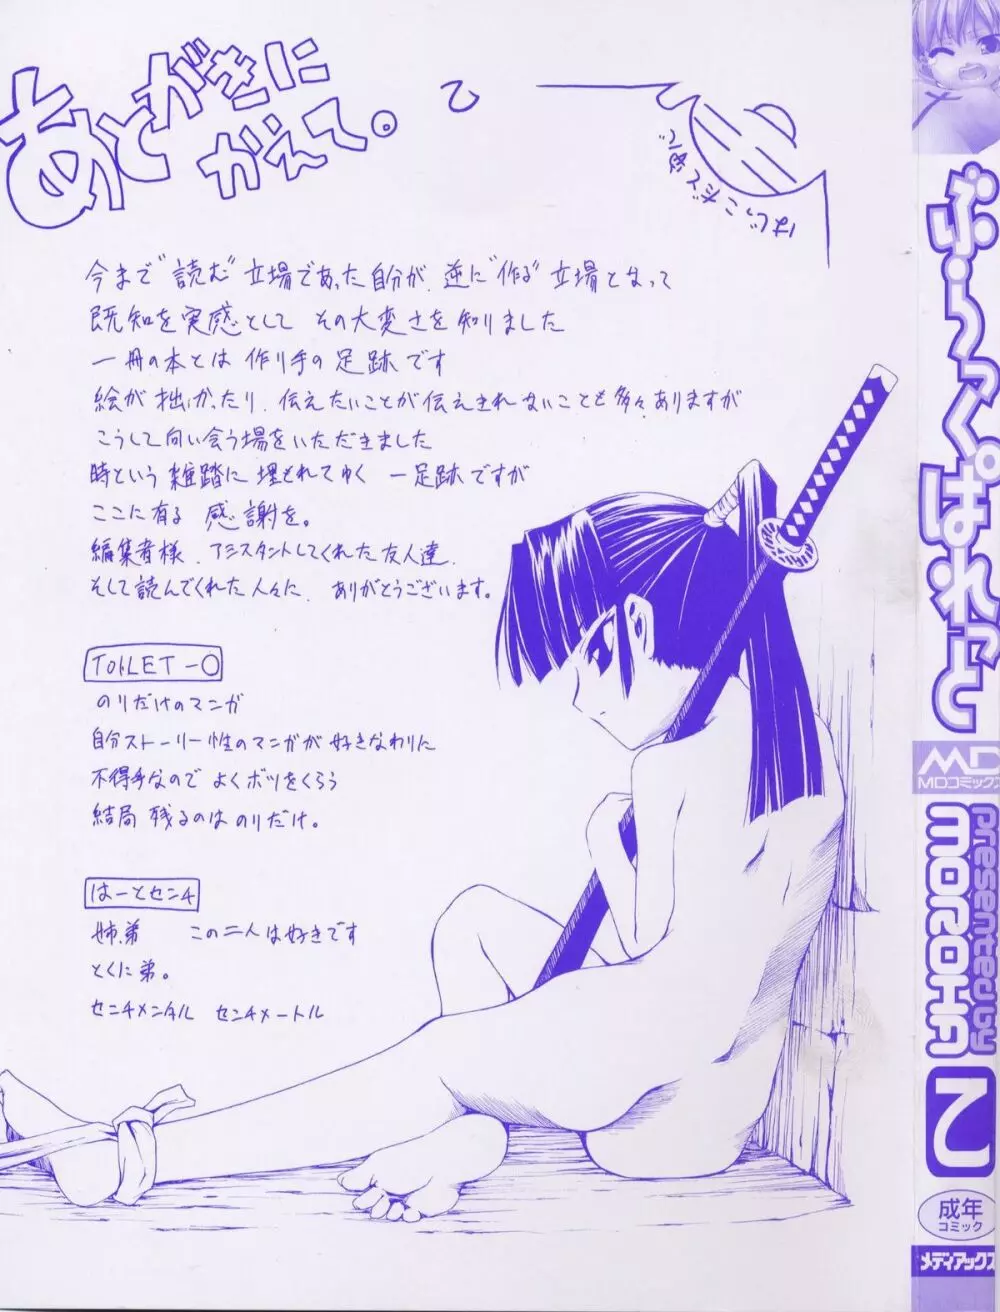 あとがきに
かえて。
乙
今まで"読む"立場であった自分が、逆に"作る"立場となって
既知を実感として その大変さを知りました
一冊の本とは 作り手の足跡です
絵が拙かったり、伝えたいことが伝えきれないことも多々ありますが
こうして向い会う場をいただきました
時という雑踏に埋もれてゆく 一足跡ですが
ここに有る 感謝を。
編集者様、アシスタントしてくれた友人達、
そして読んでくれた人々に、ありがとうございます。
TOILET-O
のりだけのマンガ
自分ストーリー性のマンガが好きなわりに
不得手なので よくボツをくらう
結局 残るのは のりだけ。
はーとセンチ
姉、弟 この二人は好きです
とくに弟。
センチメンタル センチメートル
ぶらっくぱれっと
MD
MDコミックス
presented by
MOROHA
乙
成年
コミック
メディアックス